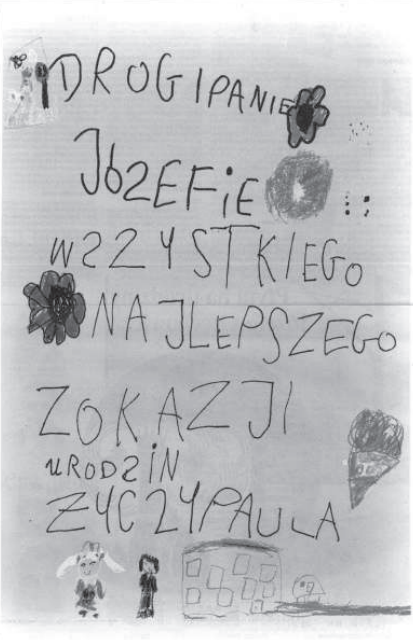 DROGIPANIE
JÓZEFiE
WSZYSTKIEGO
NAJLEPSZEGO
ZOKAZJI
URODZiN
ŻYCZYPAULA